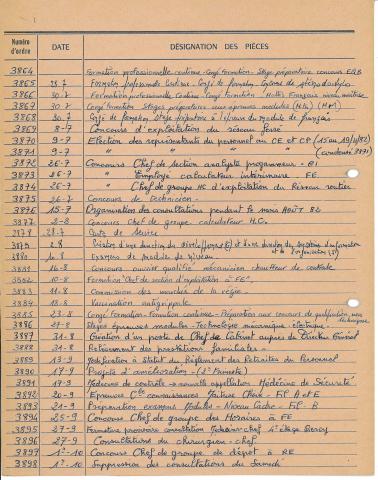 Numéro d'ordre DATE DÉSIGNATION DES PIÈCES
3864 Formation professionnelle continue - Congé Formation - Stage préparatoire concours EQB
3865 28.7 Formation professionnelle continue - Congé de formation
3866 30.7 Formation professionnelle continue - Congé formation - Français niveau maîtrise
3867 30.7 Congé formation Stages préparatoires aux épreuves modules
3868 30.7 Congé de formation Stage préparatoire à l'épreuve du module de français
3869 8-7 Concours d'exploitation du réseau ferré
3870 9-7 Election des représentants du personnel au CE et CP (15 au 19/11/82)
3871 9-7 " " " (3871)
3872 26-7 Concours Chef de section analyste programmeur - OI
3873 26-7 " Employé calculateur intérimaire - FE
3874 26-7 " Chef de groupe HC d'exploitation du Réseau routier
3875 26-7 Concours de technicien -
3876 15-7 Organisation des consultations pendant le mois AOÛT 82
3877 2-8 Concours Chef de groupe calculateur H.C.
3878 28-7 de Service
3879 2.8 Création d'une direction du développement et d'une direction du système d'information
3880 10-8 Examens de module de niveau
3881 16-8 Concours ouvrier qualifié mécanicien chauffeur de centrale
3882 10-8 Formation "Chef de section d'exploitation à FE"
3883 11-8 Commission des marchés de la régie
3884 18-8 Vaccination antigrippale
3885 23-8 Congé formation - Formation continue - Préparation aux concours de qualification
3886 27-8 Stages épreuves modules - Technologie mécanique électrique - techniques
3887 31-8 Création d'un poste de Chef de Cabinet auprès du Directeur Général
3888 31-8 Relèvement des prestations familiales -
3889 13-9 Modification à Statut du Règlement des Retraites du Personnel
3890 17-9 Projets d'amélioration - (2e Primata)
3891 17-9 Médecins de contrôle → nouvelle appellation Médecine de Sécurité
3892 20-9 Epreuves Ct connaissances Maîtrise Choix - Fil A et E
3893 21-9 Préparation examens Modules - Niveau Cadre - Fil - B
3894 25-9 Concours Chef de groupe des Horaires à FE
3895 27-9 Fermeture provisoire consultation Médecin-chef 4e étage Bercy
3896 27-9 Consultations du chirurgien-chef
3897 1°-10 Concours Chef de groupe de dépôt à RE
3898 1°-10 Suppression des consultations du Samedi